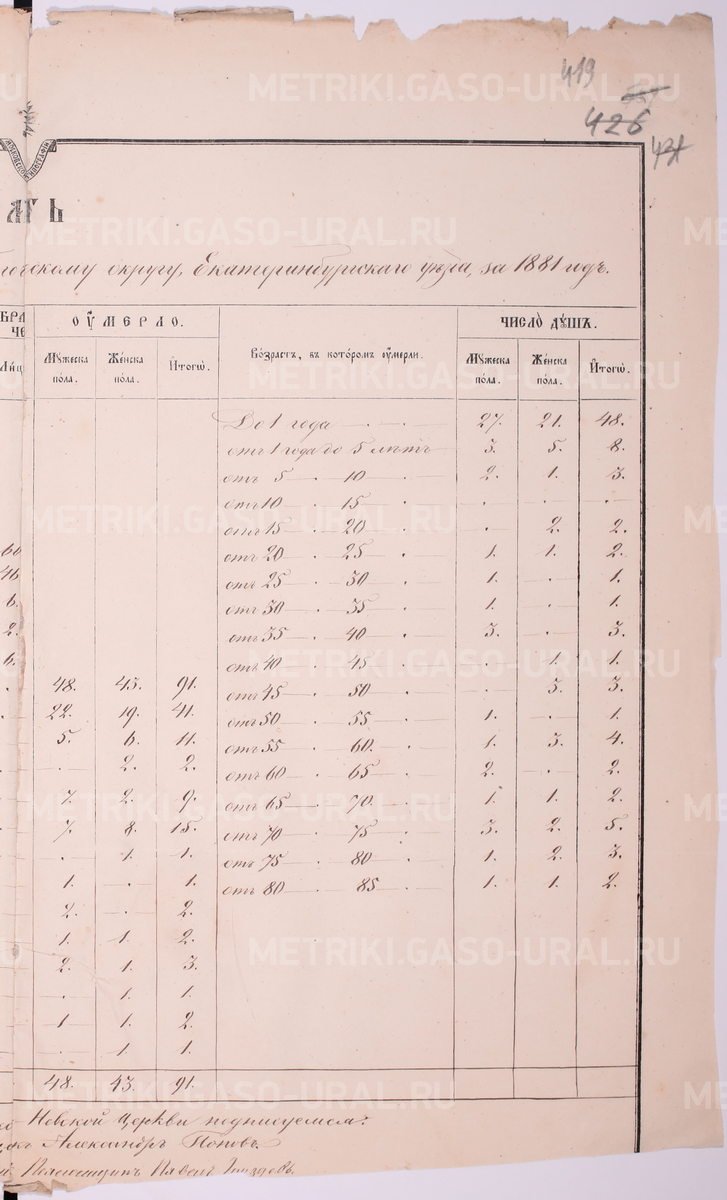 419
426
МОСКОВСКОЙ
ТЬ
округу, Екатеринбургскаго уѣзда, за 1881 годъ.
БРА
ЧЕ
ОУМЕРЛО.
ЧИСЛО ДУШЪ.
Мужеска пола.
Женска пола.
Итого.
Возрастъ, въ которомъ оумерли.
Мужеска пола.
Женска пола.
Итого.
До 1 года 27. 21. 48.
отъ 1 года до 5 лѣтъ 3. 5. 8.
отъ 5 . 10 . 2. 1. 3.
отъ 10 . 15 . . . .
отъ 15 . 20 . . 2. 2.
60 отъ 20 . 25 . 1. 1. 2.
46 отъ 25 . 30 . 1. . 1.
6. отъ 30 . 35 . 1. . 1.
2. отъ 35 . 40 . 3. . 3.
6. отъ 40 . 45 . . 1. 1.
. 48. 43. 91. отъ 45 . 50 . . 3. 3.
22. 19. 41. отъ 50 . 55 . 1. . 1.
5. 6. 11. отъ 55 . 60. . 1. 3. 4.
. 2. 2. отъ 60 . 65 . 2. . 2.
7. 2. 9. отъ 65 . 70 . 1. 1. 2.
7. 8. 15. отъ 70 . 75 . 3. 2. 5.
. 1. 1. отъ 75 . 80 . 1. 2. 3.
1. . 1. отъ 80 . 85 . 1. 1. 2.
2. . 2.
1. 1. 2.
2. 1. 3.
. 1. 1.
1 1. 2.
. 1 1.
48. 43. 91.
Невской церкви подписуемся:
Александръ Поповъ.
Псаломщикъ Павелъ
METRIKI.GASO-URAL.RU